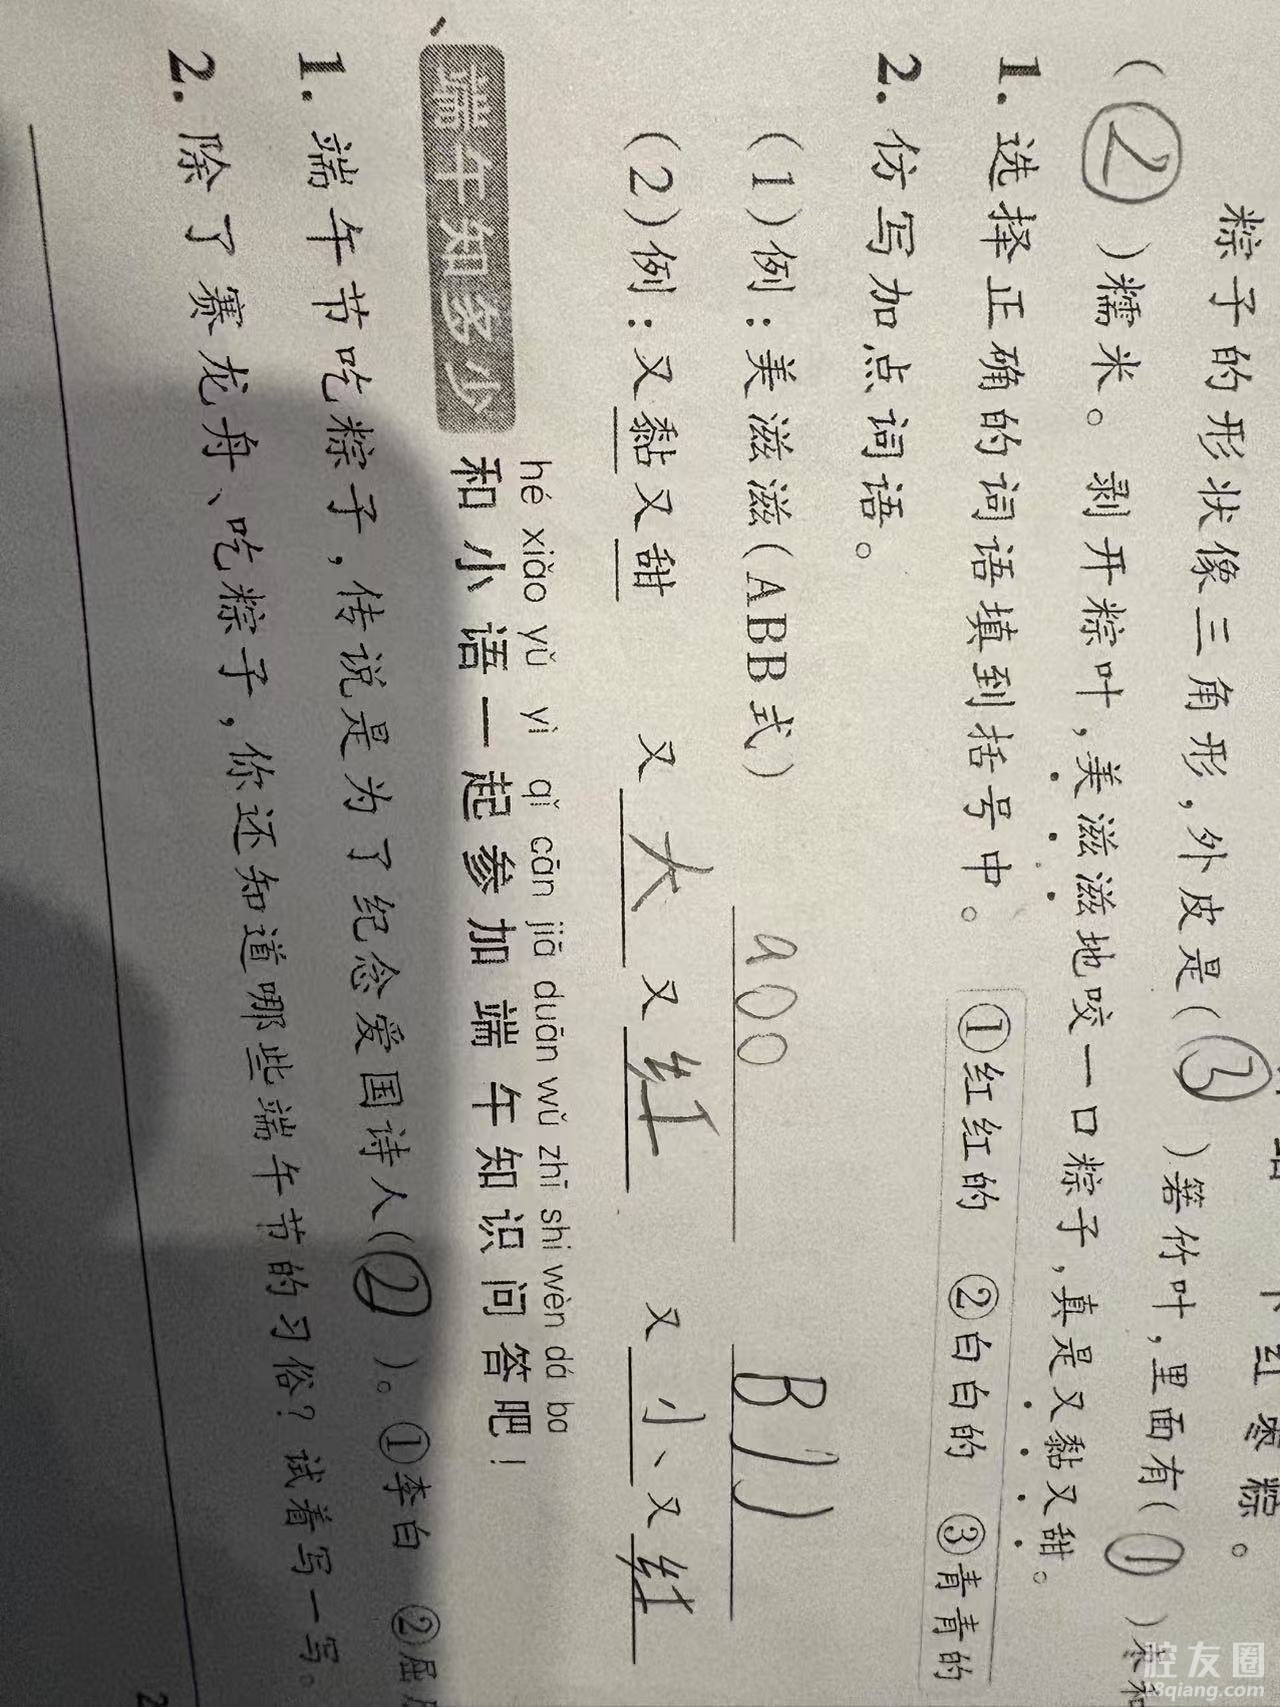 红枣粽。
粽子的形状像三角形,外皮是(③)箬竹叶,里面有(①)枣和
(②)糯米。剥开粽叶,美滋滋地咬一口粽子,真是又黏又甜。
1.选择正确的词语填到括号中。 ①红红的 ②白白的 ③青青的
2.仿写加点词语。
(1)例:美滋滋(ABB式) aoo BJJ
(2)例:又黏又甜 又大又红 又小、又红
端午知多少
hé xiǎo yǔ yì qǐ cān jiā duān wǔ zhī shi wèn dá ba
和小语一起参加端午知识问答吧!
1.端午节吃粽子,传说是为了纪念爱国诗人(②)。①李白 ②屈
2.除了赛龙舟、吃粽子,你还知道哪些端午节的习俗?试着写一写。
2
腔友圈
18qiang.com